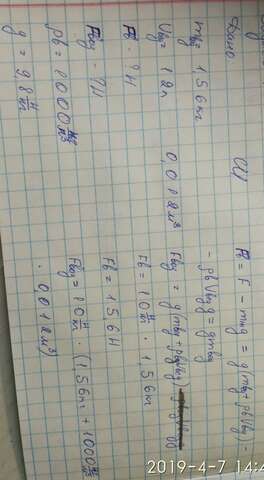 Дано
mбу = 15,6 кг
Vбу = 12 л
Fв - ? Н
Fбу - ? Н
ρв = 1000 кг/м³
g = 9,8 Н/кг
СИ
0,012 м³
Fв = F - mбуg = g(mбу + ρвVбу) -
- ρвVбуg = gmбу
Fбу = g(mбу + ρвVбу)
Fв = 10 Н/кг · 15,6 кг
Fв = 156 Н
Fбу = 10 Н/кг · (15,6 кг + 1000 кг/м³
· 0,012 м³)
2019-4-7 14:4